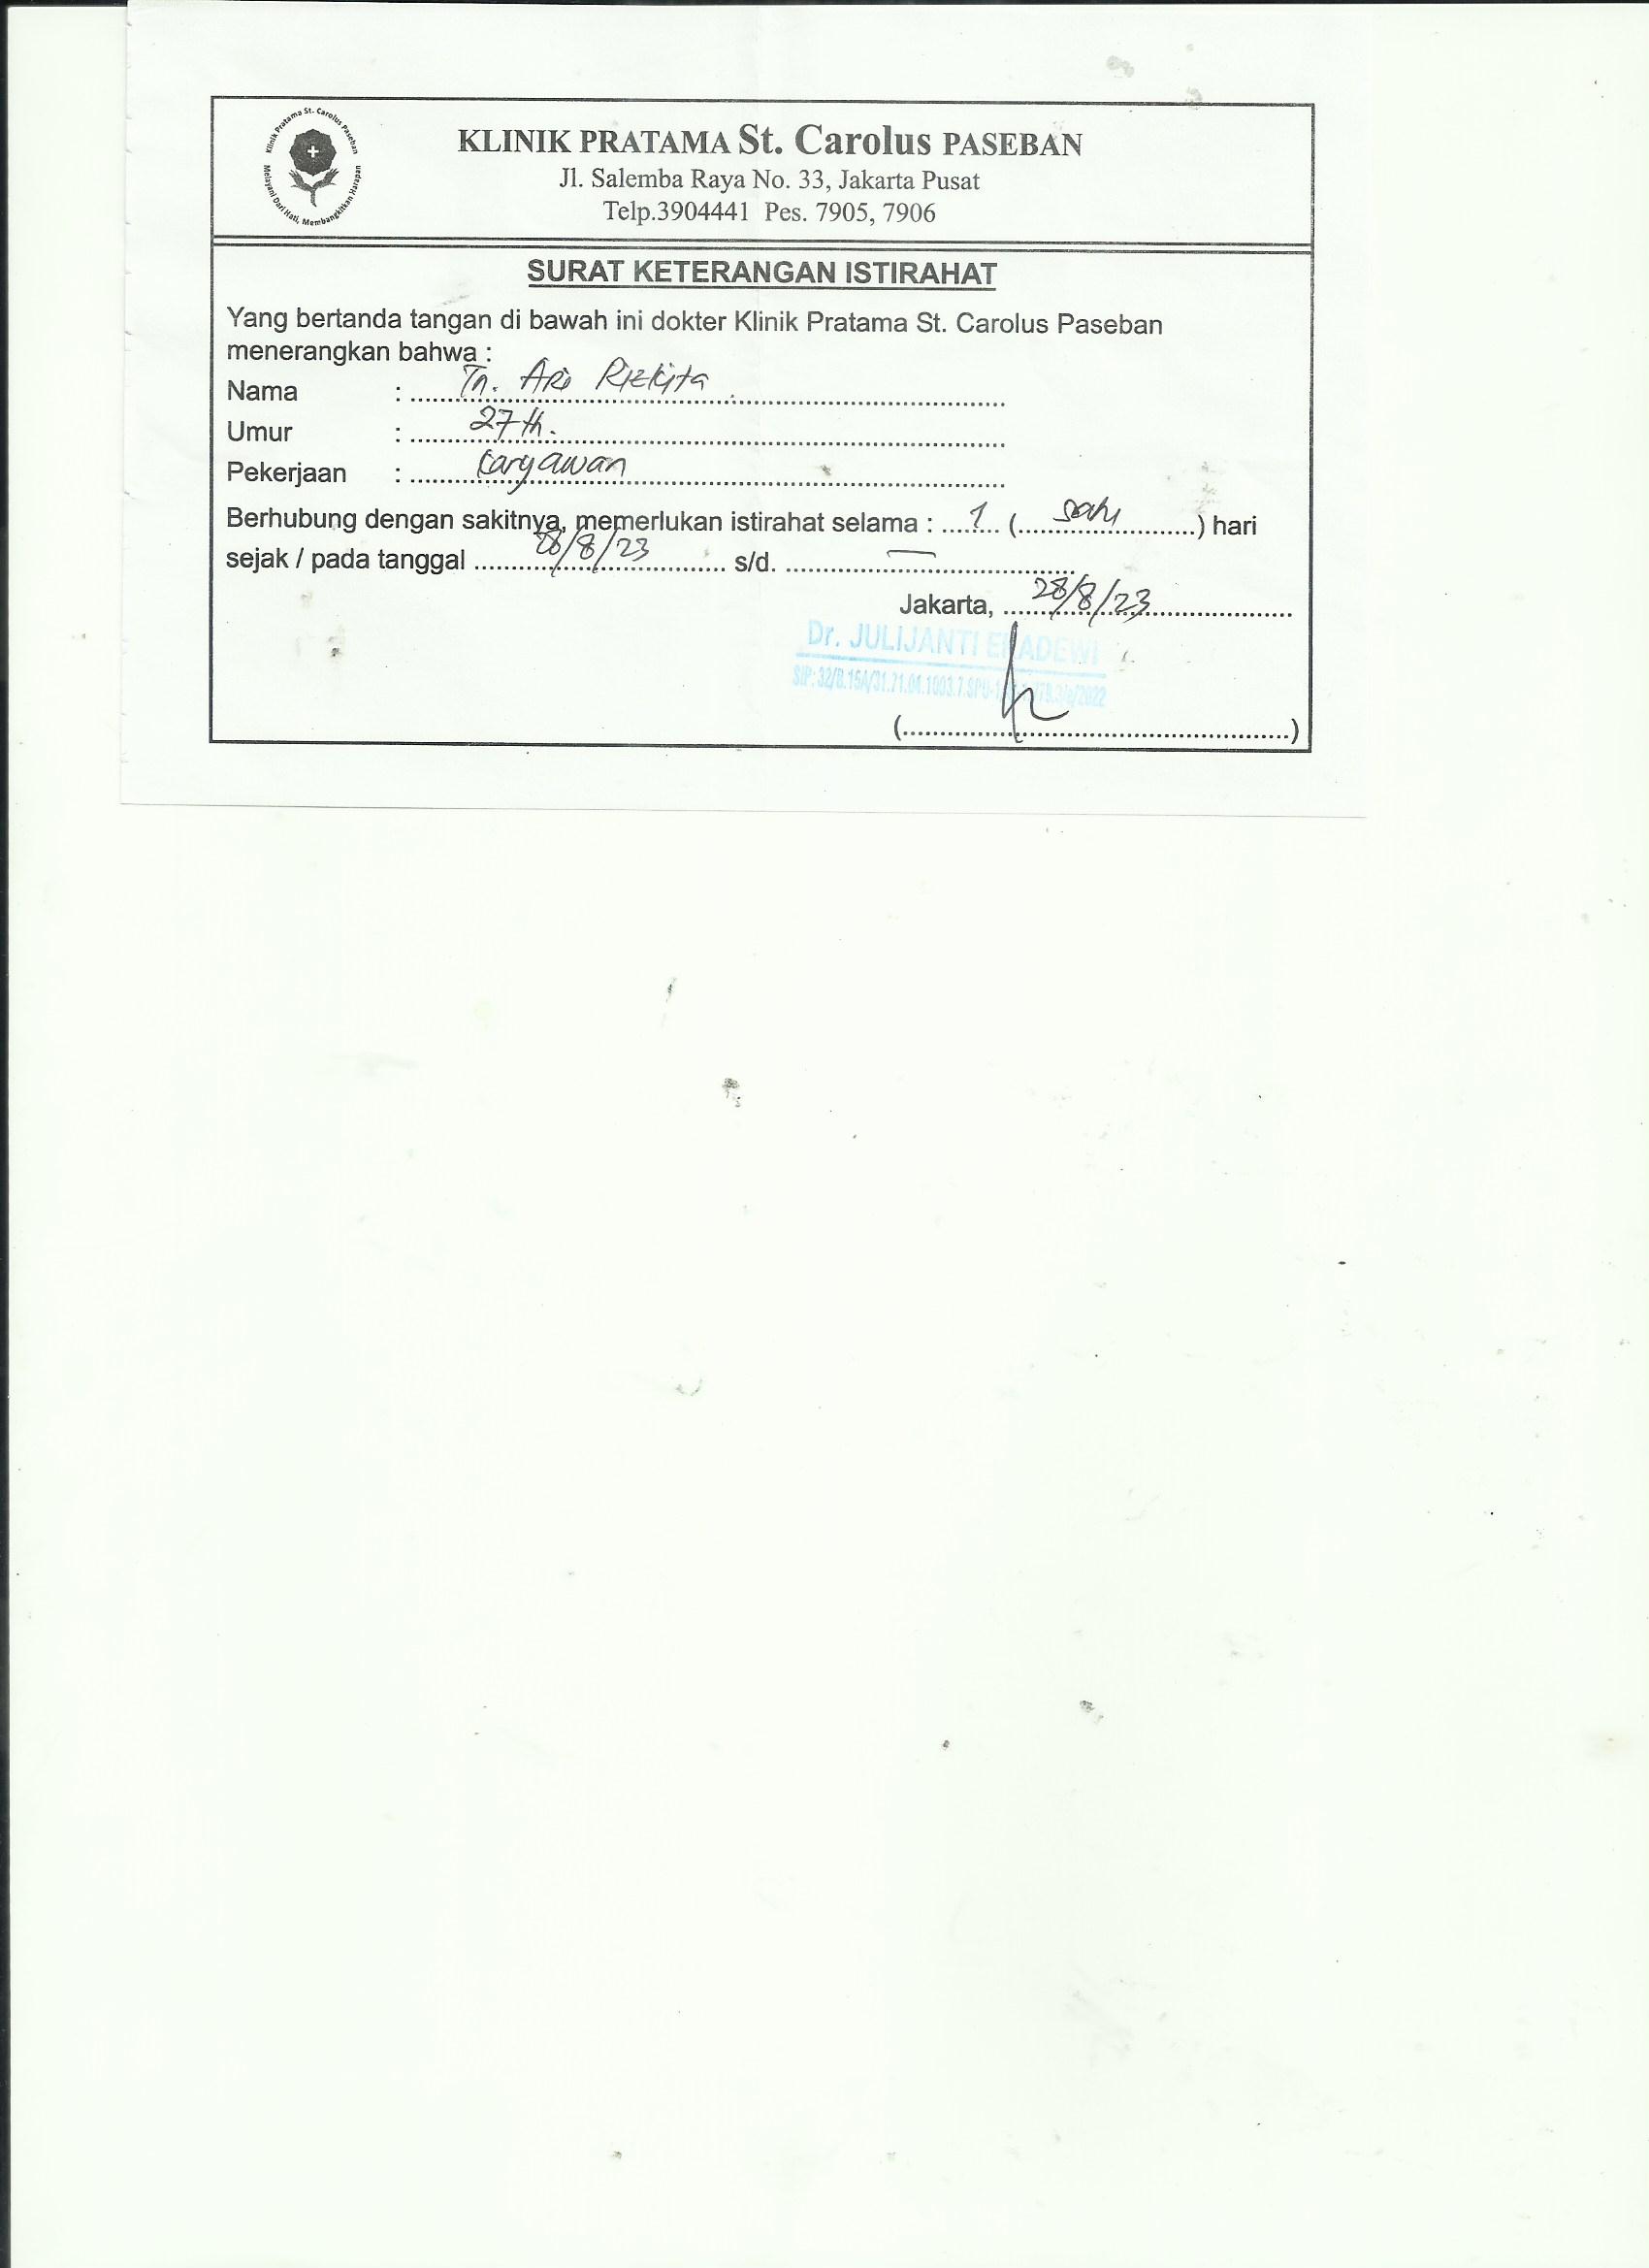 Klinik Pratama St. Carolus Paseban
Melayani Dari Hati, Membangkitkan Harapan
KLINIK PRATAMA St. Carolus PASEBAN
Jl. Salemba Raya No. 33, Jakarta Pusat
Telp.3904441 Pes. 7905, 7906
SURAT KETERANGAN ISTIRAHAT
Yang bertanda tangan di bawah ini dokter Klinik Pratama St. Carolus Paseban
menerangkan bahwa :
Nama : Tn. Ario Rizkita
Umur : 27 th.
Pekerjaan : karyawan
Berhubung dengan sakitnya, memerlukan istirahat selama : 1 ( satu ) hari
sejak / pada tanggal 28/8/23 s/d. —
Jakarta, 28/8/23
Dr. JULIJANTI
(..........)